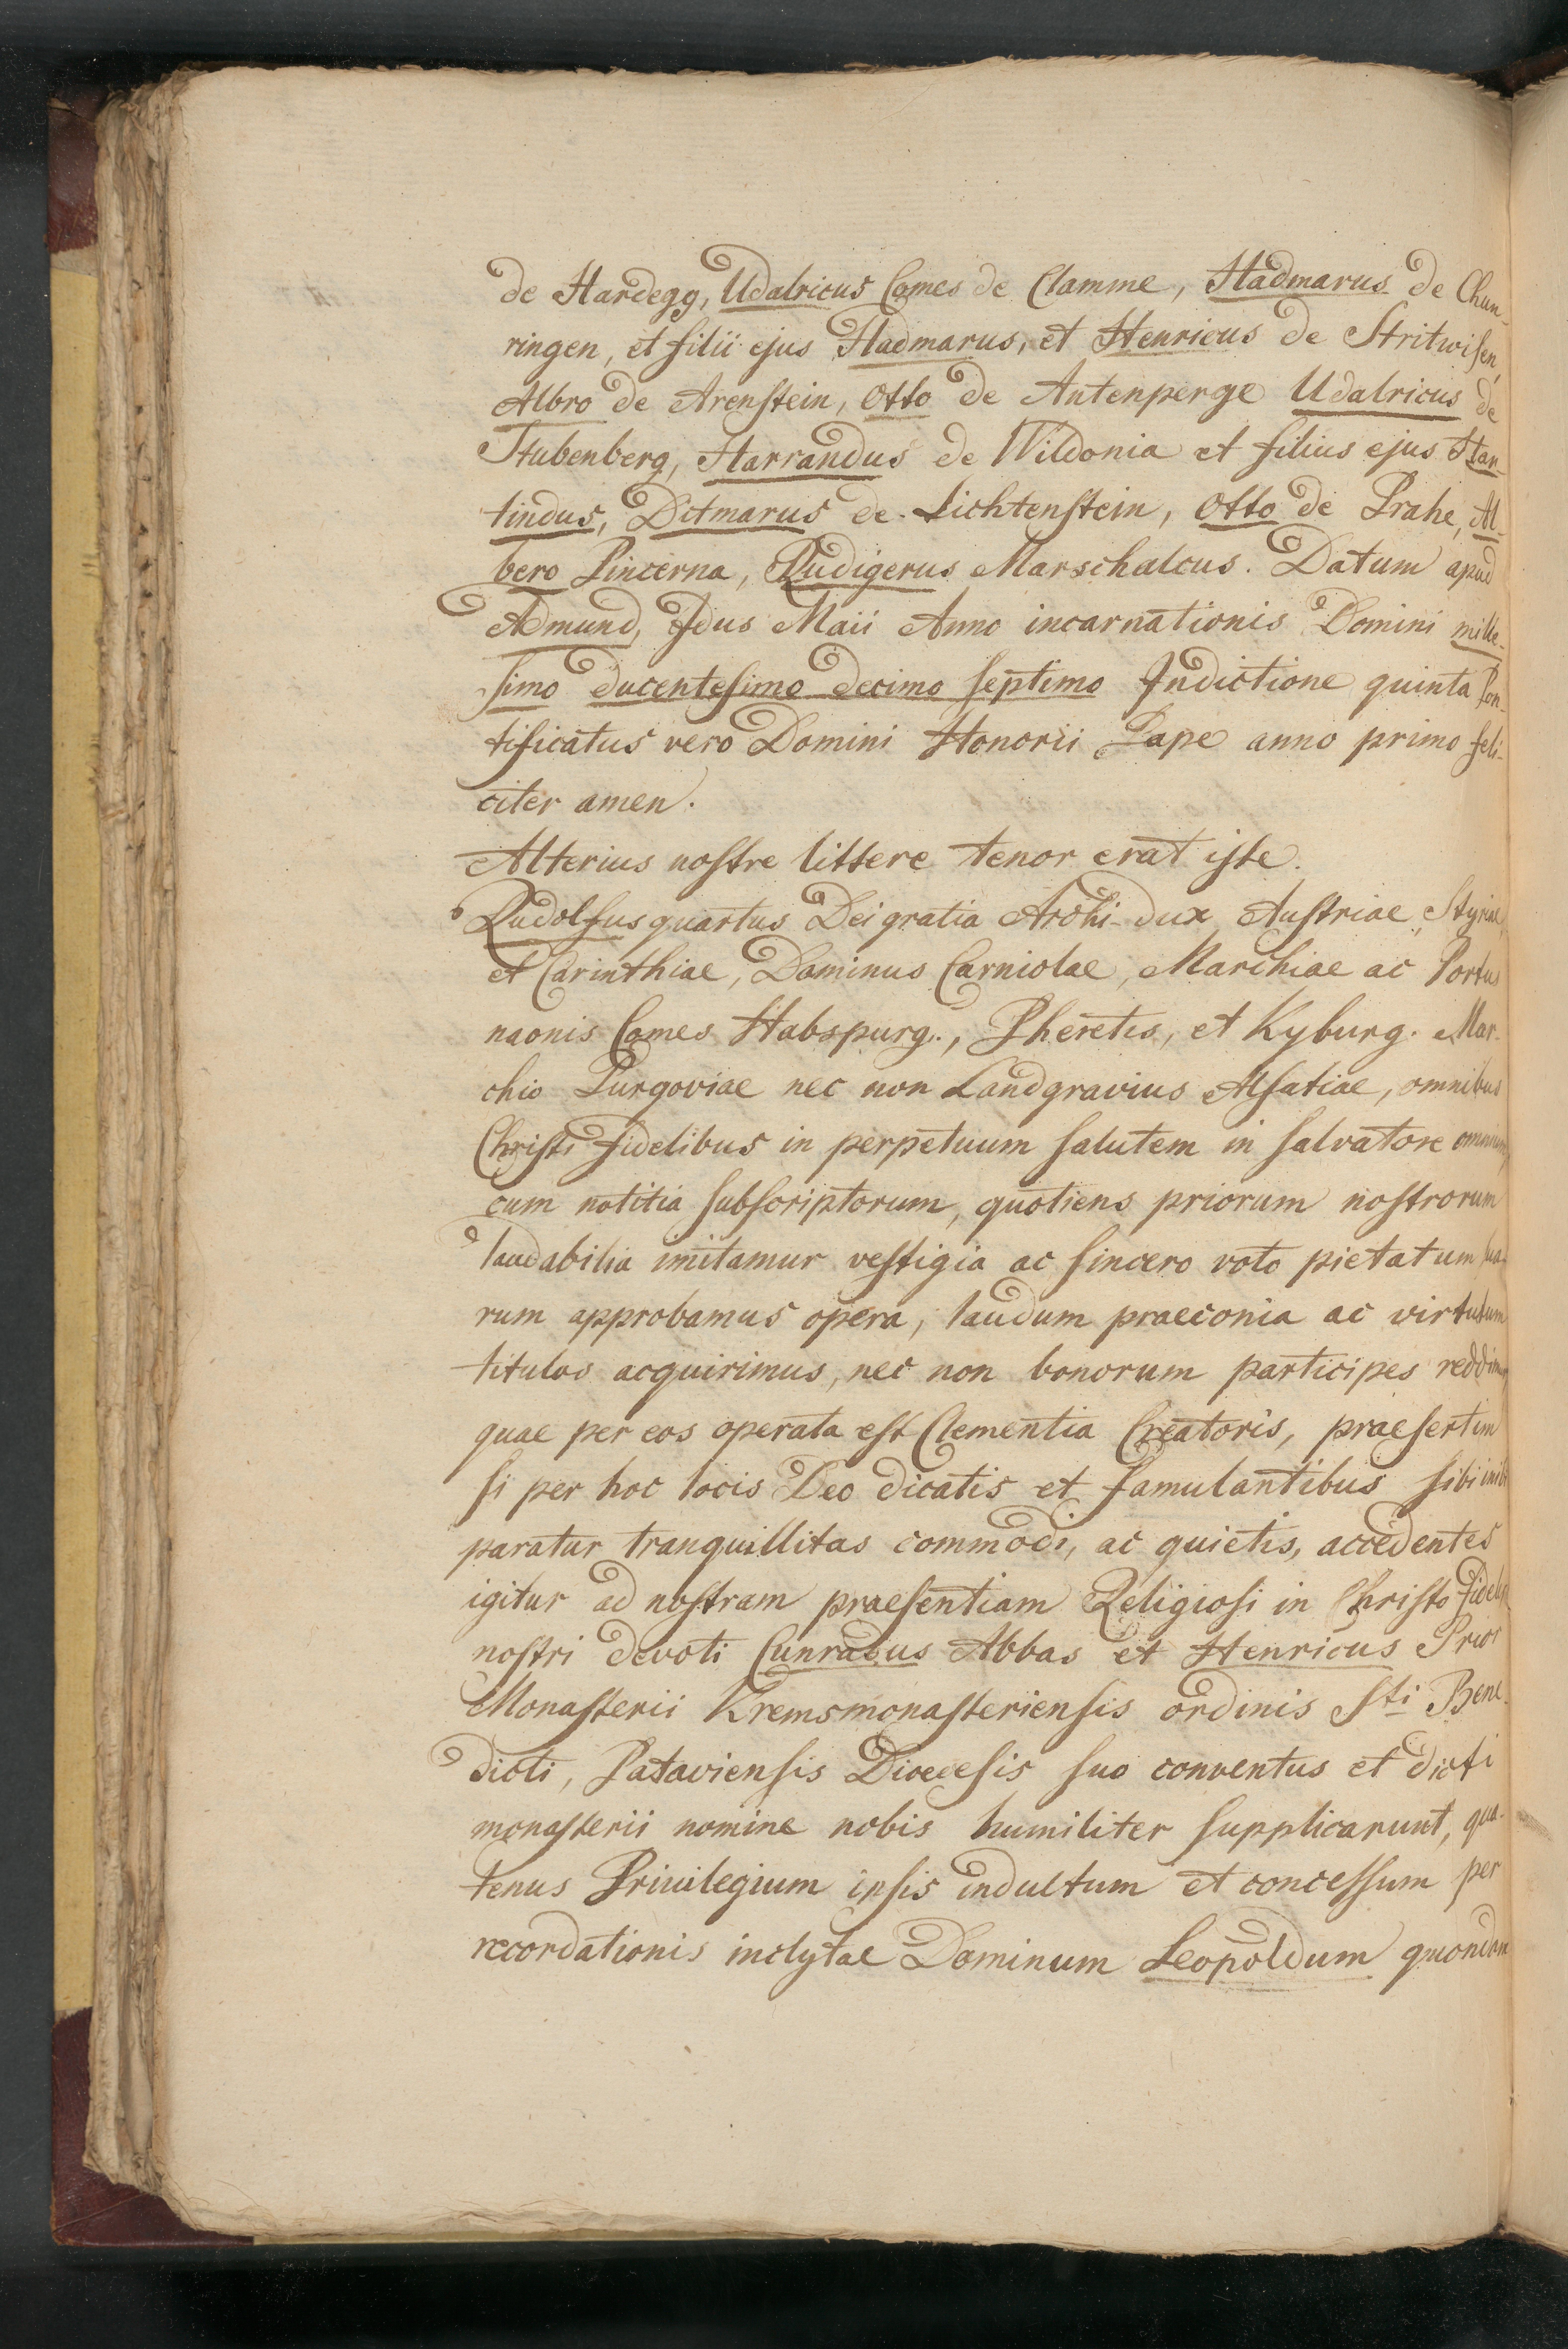 de Hardegg, Udalricus Comes de Clamme, Hadmarus de Chun-
ringen, et filii ejus Hadmarus, et Henricus de Stritwisen,
Albro de Arenstein, Otto de Antenperge Udalricus de
Stubenberg, Harrandus de Wildonia et filius ejus Har-
tindus, Ditmarus de Lichtenstein, Otto de Prahe, Al-
bero Pincerna, Rudigerus Marschalcus. Datum apud
Admund, Idus Maii Anno incarnationis Domini mille-
simo ducentesimo decimo septimo Indictione quinta Pon-
tificatus vero Domini Honorii Pape anno primo feli-
citer amen.
Alterius nostre littere tenor erat iste.
Rudolfus quartus Dei gratia Archi-dux Austriae, Styriae,
et Carinthiae, Dominus Carniolae, Marchiae ac Portus
naonis Comes Habspurg., Pheretis, et Kyburg. Mar-
chio Purgoviae nec non Landgravius Alsatiae, omnibus
Christi fidelibus in perpetuum salutem in salvatore omnium,
cum notitia subscriptorum, quotiens priorum nostrorum
laudabilia imitamur vestigia ac sincero voto pietatum sua-
rum approbamus opera, laudum praeconia ac virtutum
titulos acquirimus, nec non bonorum participes reddimur,
quae per eos operata est Clementia Creatoris, praesertim
si per hoc locis Deo dicatis et famulantibus sibi inibi
paratur tranquillitas commodi, ac quietis, accedentes
igitur ad nostram praesentiam Religiosi in Christo fideles
nostri devoti Cunradus Abbas et Henricus Prior
Monasterii Kremsmonasteriensis ordinis Sti Bene-
dicti, Pataviensis Dioecesis suo conventus et dicti
monasterii nomine nobis humiliter supplicarunt, qua-
tenus Privilegium ipsis indultum et concessum per
recordationis inclytae Dominum Leopoldum quondam